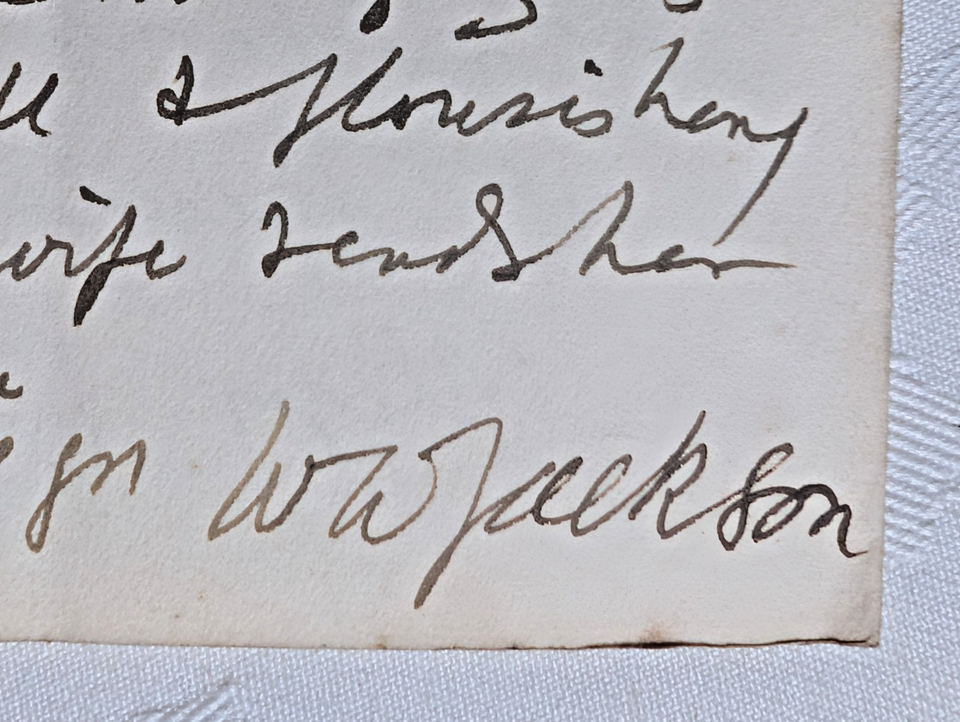 ll & flourishing
wife sends her
gn W W Jackson